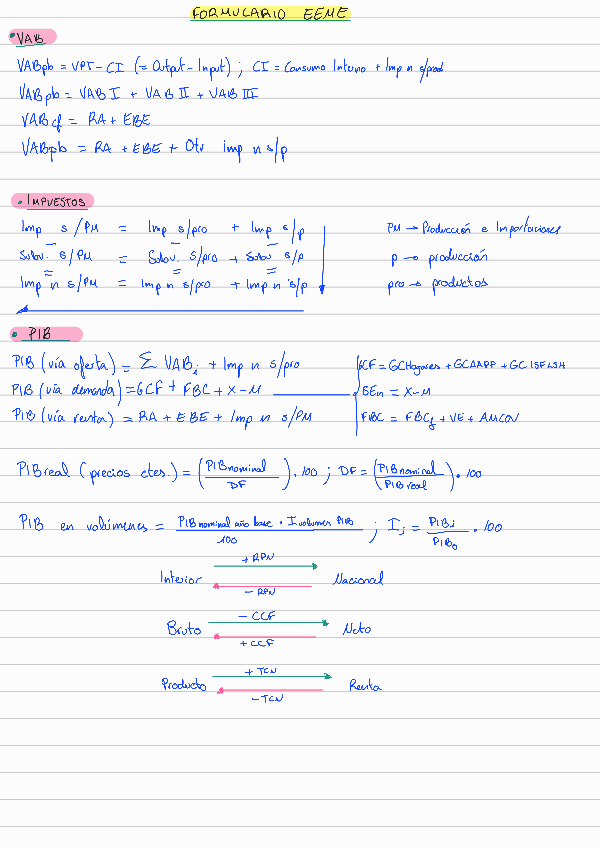 FORMULARIO EEME
• VAB
VABpb = VPT - CI (= Output - Input) ; CI = Consumo Interno + Imp n s/prod
VABpb = VAB I + VAB II + VAB III
VABcf = RA + EBE
VABpb = RA + EBE + Otr imp n s/p
• IMPUESTOS
Imp s/PM = Imp s/pro + Imp s/p PM → Producción e Importaciones
Subv. s/PM = Subv. s/pro + Subv s/p p → producción
Imp n s/PM = Imp n s/pro + Imp n s/p pro → productos
• PIB
PIB (vía oferta) = Σ VABi + Imp n s/pro GCF = GCHogares + GCAAPP + GCISFLSH
PIB (vía demanda) = GCF + FBC + X - M SEn = X - M
PIB (vía renta) = RA + EBE + Imp n s/PM FBC = FBCf + VE + AMCOV
PIB real (precios ctes.) = (PIB nominal / DF) · 100 ; DF = (PIB nominal / PIB real) · 100
PIB en volúmenes = PIB nominal año base · I volumen PIB / 100 ; Ii = PIBi / PIB0 · 100
+ RPN
Interior Nacional
- RPN
- CCF
Bruto Neto
+ CCF
+ TCN
Producto Renta
- TCN